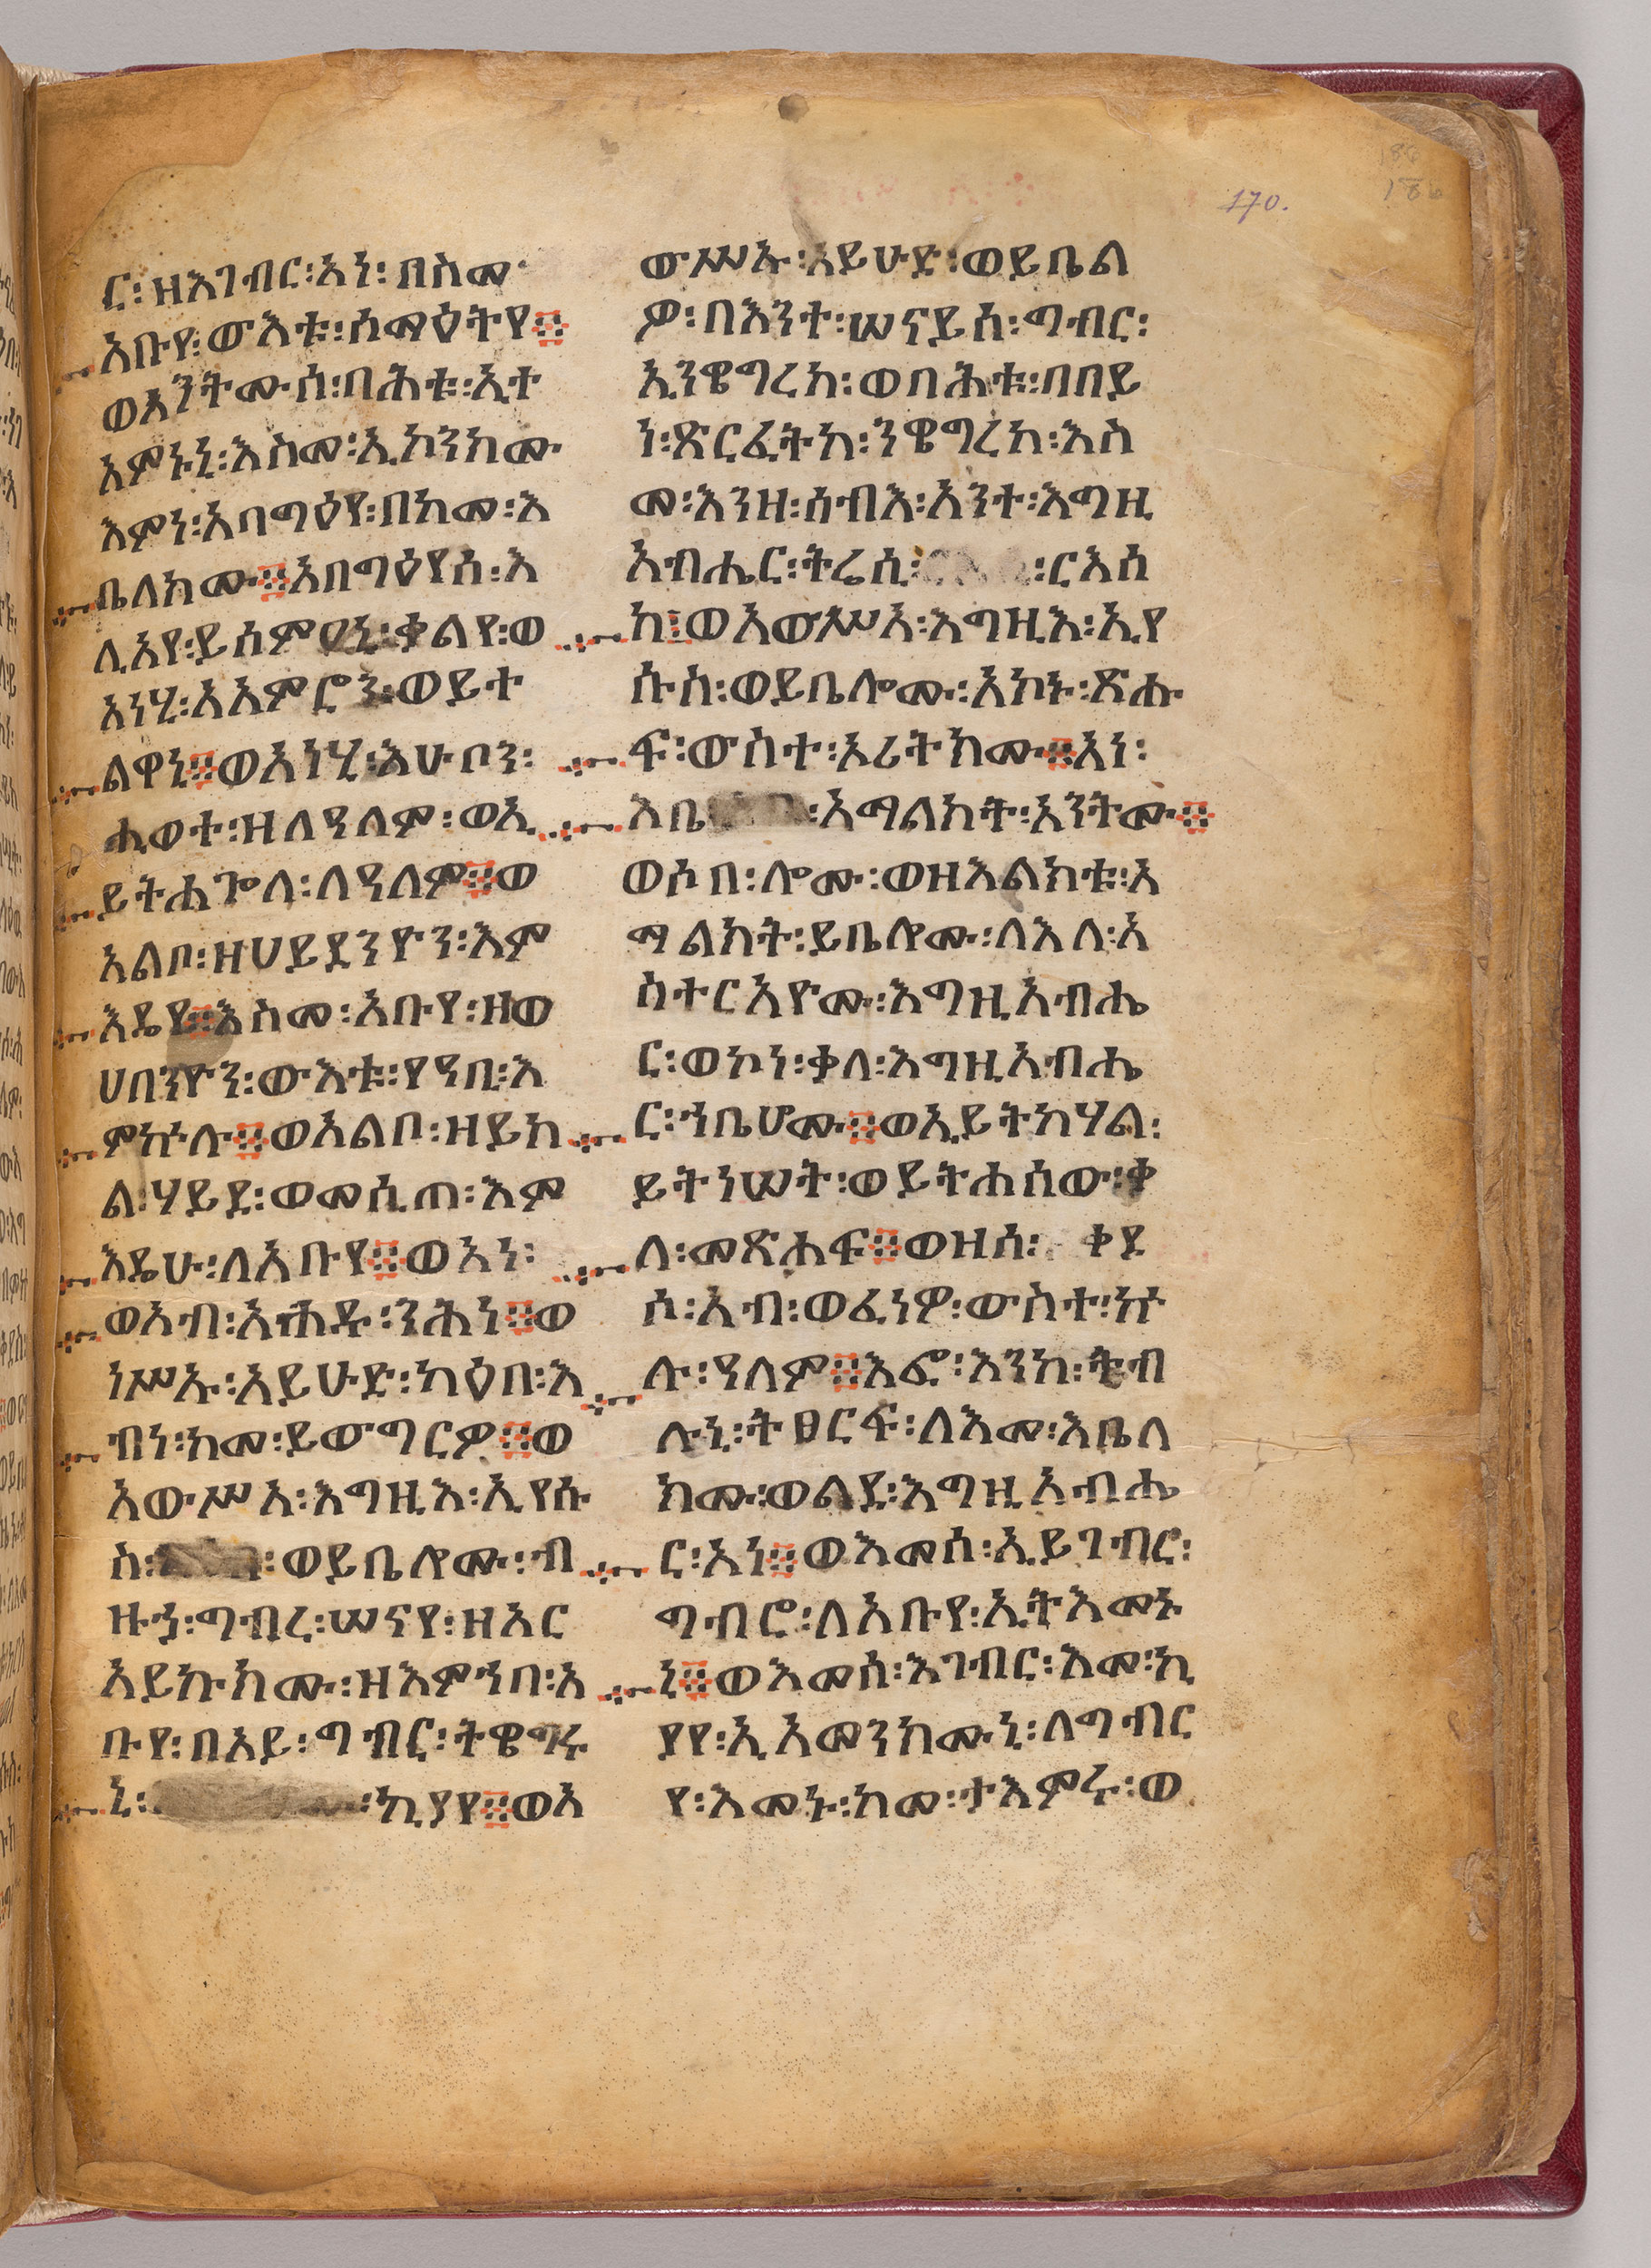 170.
186
ር፡ ዘእገብር፡ አነ፡ በስመ
አቡየ፡ ውእቱ፡ ሰማዕትየ፨
ወአንትሙሰ፡ በሕቱ፡ ኢተ
አምኑኒ፡ እስመ፡ ኢኮንክሙ
እምነ፡ አባግዕየ፡ በከመ፡ እ
ቤለክሙ፨ አበግዕየሰ፡ እ
ሊአየ፡ ይሰምዐኒ፡ ቃልየ፡ ወ
አነሂ፡ አአምሮን፡ ወይተ
ልዋኒ፨ ወአነሂ፡ እሁቦን፡
ሒወተ፡ ዘለዓለም፡ ወኢ
ይትሐጐላ፡ ለዓለም፨ ወ
አልቦ፡ ዘሀይደንዮን፡ እም
እዴየ፨ እስመ፡ አቡየ፡ ዘወ
ሀበንዮን፡ ውእቱ፡ የዓቢ፡ እ
ምኵሉ፨ ወአልቦ፡ ዘይክ
ል፡ ሃይደ፡ ወመሲጠ፡ እም
እዴሁ፡ ለአቡየ፨ ወአነ፡
ወአብ፡ አሐዱ፡ ንሕነ፨ ወ
ነሥኡ፡ አይሁድ፡ ካዕበ፡ እ
ብነ፡ ከመ፡ ይውግርዎ፨ ወ
አውሥአ፡ እግዚአ፡ ኢየሱ
ስ፡ ወይቤሎሙ፡ ብ
ዙኃ፡ ግብረ፡ ሠናየ፡ ዘአር
አይኩክሙ፡ ዘእምኀበ፡ አ
ቡየ፡ በአይ፡ ግብር፡ ትዌግሩ
ኒ፡ ኪያየ፨ ወአ
ውሥኡ፡ አይሁድ፡ ወይቤል
ዎ፡ በእንተ፡ ሠናይሰ፡ ግብር፡
ኢንዌግረከ፡ ወበሕቱ፡ በበይ
ነ፡ ጽርፈትከ፡ ንዌግረከ፡ እስ
መ፡ እንዘ፡ ሰብእ፡ አንተ፡ እግዚ
አብሔር፡ ትሬሲ፡ ርእሰ
ከ፡ ወአውሥአ፡ እግዚአ፡ ኢየ
ሱስ፡ ወይቤሎሙ፡ አኮኑ፡ ጽሑ
ፍ፡ ውስተ፡ ኦሪትክሙ፨ አነ፡
እቤ ፡ አማልክት፡ አንትሙ፨
ወሶበ፡ ሎሙ፡ ወዘእልክቱ፡ አ
ማልክት፡ ይቤሎሙ፡ ለእለ፡ አ
ስተርአዮሙ፡ እግዚአብሔ
ር፡ ወኮነ፡ ቃለ፡ እግዚአብሔ
ር፡ ኀቤሆሙ፨ ወኢይትከሃል፡
ይትነሠት፡ ወይትሐሰው፡ ቃ
ለ፡ መጽሐፍ፨ ወዘሰ፡ ቀደ
ሶ፡ አብ፡ ወፈነዎ፡ ውስተ፡ ኵ
ሉ፡ ዓለም፨ እፎ፡ እንከ፡ ትብ
ሉኒ፡ ትፀርፍ፡ ለእመ፡ እቤለ
ክሙ፡ ወልደ፡ እግዚአብሔ
ር፡ አነ፨ ወእመሰ፡ ኢይገብር፡
ግብሮ፡ ለአቡየ፡ ኢትእመኑ
ኒ፨ ወእመሰ፡ እገብር፡ እመ፡ ኪ
ያየ፡ ኢአመንክሙኒ፡ ለግብር
የ፡ እመኑ፡ ከመ፡ ታእምሩ፡ ወ